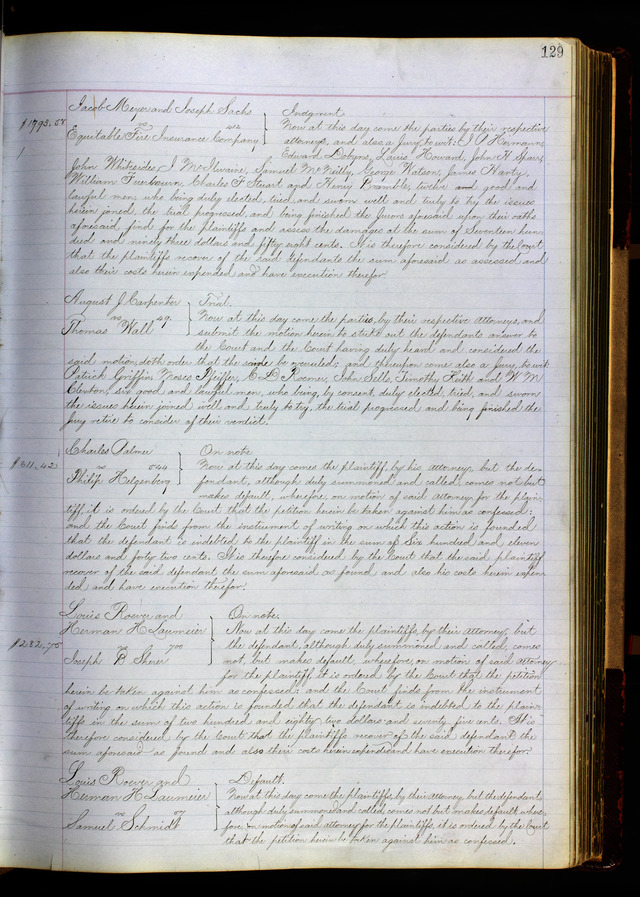 129
Jacob Meyer and Joseph Sachs Judgment
$1793.58 vs Now at this day come the parties by their respective
Equitable Fire Insurance Company attorneys, and also a Jury to wit:
Edward Dobyns, Louis Howard, John H. Spears,
John Whitesides, J McIlwaine, Samuel McNeilly, George Watson, James Hanty,
William Freebourn, Charles F Stuart and Henry Bramble, twelve and good and
lawful men, who being duly elected, tried, and sworn well and truly to try the issues
herein joined, the trial progressed, and being finished the Jurors aforesaid upon their oaths
aforesaid find for the plaintiffs and assess the damages at the sum of Seventeen hun-
dred and ninety three dollars and fifty eight cents. It is therefore considered by the Court
that the plaintiffs recover of the said defendants the sum aforesaid as assessed and
also their costs herein expended and have execution therefor.
August J Carpenter Trial.
vs 49. Now at this day come the parties, by their respective Attorneys, and
Thomas Wall submit the motion herein to strike out the defendants answer to
the Court and the Court having duly heard and considered the
said motion, doth order that the same be overruled; and thereupon come also a Jury, to wit:
Patrick Griffin, Moses Pfeiffer, C D Roemer, John Sells, Timothy Huth and W M
Clenton, six good and lawful men, who being, by consent, duly elected, tried, and sworn
the issues herein joined well and truly to try, the trial progressed and being finished the
jury retire to consider of their verdict.
Charles Palmer On note
$611.42 vs 544 Now at this day comes the plaintiff, by his attorney, but the de-
Philip Helgenberg fendant, although duly summoned and called, comes not but
makes default, wherefore, on motion of said attorney for the plain-
tiff, it is ordered by the Court that the petition herein be taken against him as confessed:
and the Court finds from the instrument of writing on which this action is founded
that the defendant is indebted to the plaintiff in the sum of Six hundred and eleven
dollars and forty two cents. It is therefore considered by the Court that the said plaintiff
recover of the said defendant the sum aforesaid as found and also his costs herein expen-
ded and have execution therefor.
Louis Roever and On note.
Herman H Laumeier Now at this day come the plaintiffs, by their attorney, but
$282.75 vs 700 the defendant, although duly summoned and called, comes
Joseph B Sherer not, but makes default, wherefore, on motion of said attorney
for the plaintiff it is ordered by the Court that the petition
herein be taken against him as confessed: and the Court finds from the instrument
of writing on which this action is founded that the defendant is indebted to the plain-
tiffs in the sum of two hundred and eighty two dollars and seventy five cents. It is
therefore considered by the Court that the plaintiffs recover of the said defendant the
sum aforesaid as found and also their costs herein expended and have execution therefor.
Louis Roever and Default.
Herman H Laumeier Now at this day come the plaintiffs by their attorney, but the defendant
vs 07 although duly summoned and called, comes not but makes default, where-
Samuel Schmidt fore, on motion of said attorney for the plaintiffs, it is ordered by the Court
that the petition herein be taken against him as confessed.